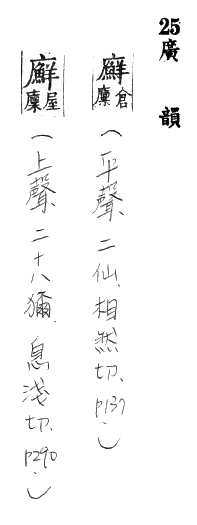 25 廣韻
廯 倉廩 (平聲、二仙、相然切、p137.)
廯 屋廩 (上聲、二十八獮、息淺切、p290.)